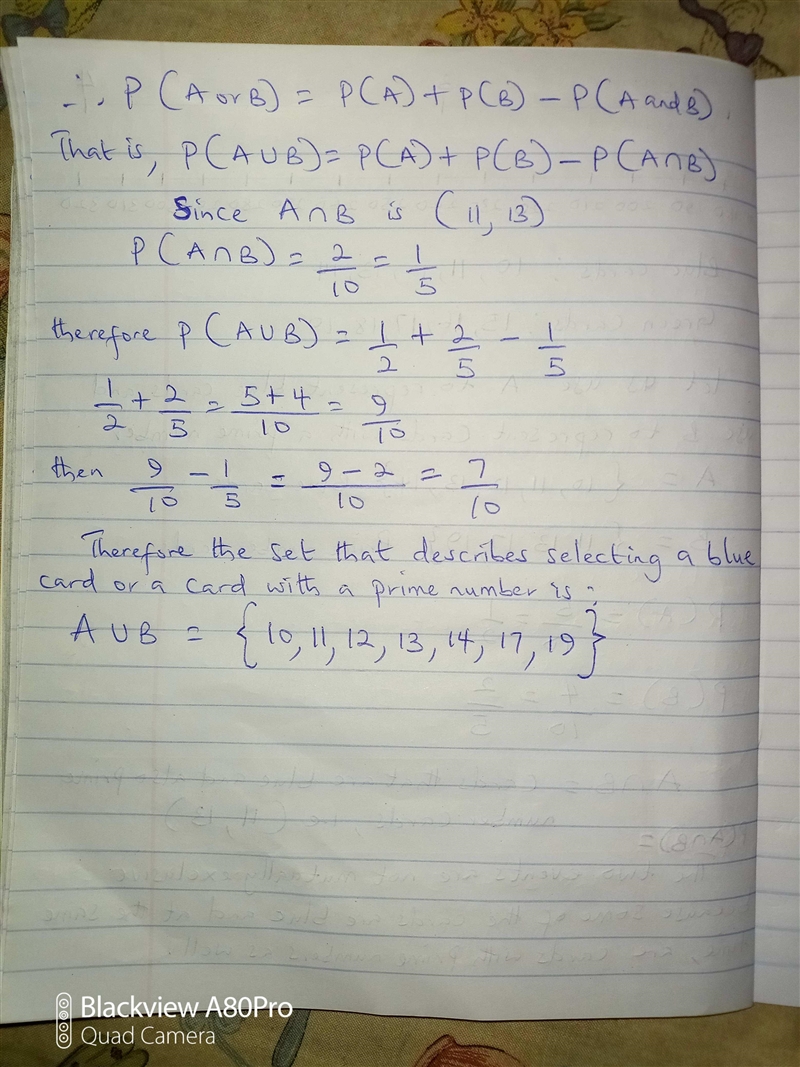 ∴ P (A or B) = P(A) + P(B) – P(A and B).
That is, P(A∪B) = P(A) + P(B) – P(A∩B)
Since A∩B is (11, 13)
P(A∩B) = 2/10 = 1/5
therefore P(A∪B) = 1/2 + 2/5 – 1/5
1/2 + 2/5 = 5+4/10 = 9/10
then 9/10 – 1/5 = 9–2/10 = 7/10
Therefore the set that describes selecting a blue
card or a card with a prime number is:
A∪B = {10, 11, 12, 13, 14, 17, 19}
Blackview A80Pro
Quad Camera